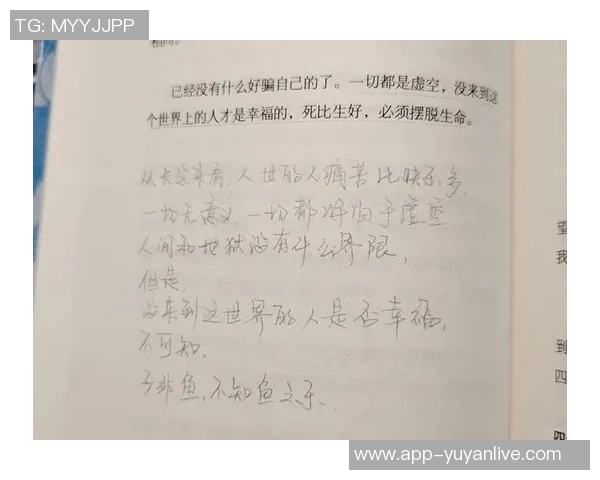 TG: MYYJJPP
相同。
已经没有什么好骗自己的了。一切都是虚空，没来到这
个世界上的人才是幸福的，死比生好，必须摆脱生命。
从长远来看，人世的人痛苦比快乐多，
一切无意义，一切都将归于虚空
人间和地狱没有什么界限，
但是，
没来到这世界的人是否幸福，
不可知，
子非鱼，不知鱼之乐、
望
我
到
四
四
www.app-yuyanlive.com